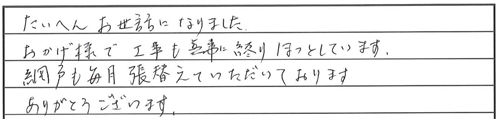 たいへんお世話になりました.
おかげ様で工事も無事に終りほっとしています.
網戸も毎月張替えていただいております
ありがとうございます.